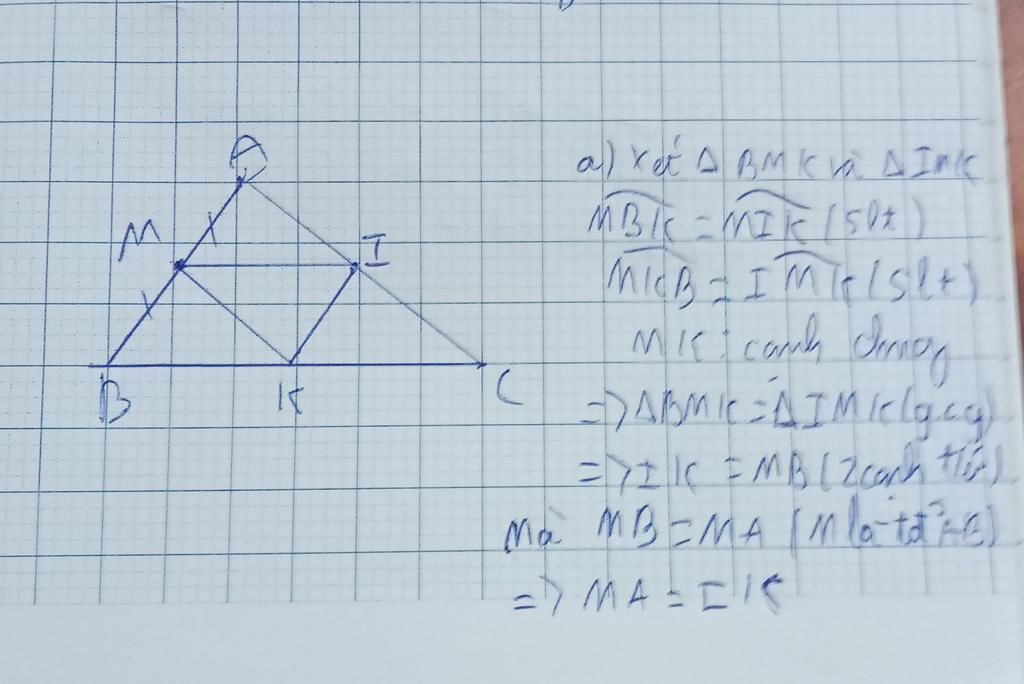 A
M
I
B
K
C
a) Xét Δ BMK và Δ IMK
MBK = MIK (slt)
MKB = IMK (slt)
MK : cạnh chung
=> ΔBMK = ΔIMK (g.c.g)
=> IK = MB (2 cạnh)
Mà MB = MA (M là
=> MA = IK